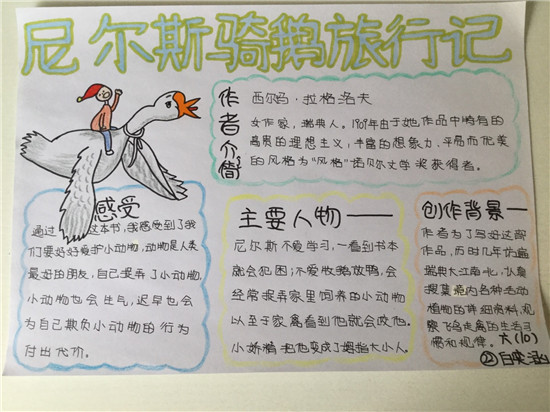 尼尔斯骑鹅旅行记
作者介绍
西尔玛·拉格洛夫
女作家,瑞典人。1909年由于她作品中特有的
高贵的理想主义,丰富的想象力,平易而优美
的风格为"风格"诺贝尔文学奖获得者。
感受
通过 这本书,我感受到了我
们要好好爱护小动物,动物是人类
最好的朋友,自己捉弄了小动物.
小动物也会生气,迟早也会
为自己欺负小动物的行为
付出代价。
主要人物——
尼尔斯不爱学习,一看到书本
就会犯困;不爱牧鹅放鸭,会
经常捉弄家里饲养的小动物
以至于家禽看到他就会咬他。
小妖精把他变成了拇指大小人。
创作背景一
作者为了写好这部
作品,历时几年访遍
瑞典大江南北,认真
搜集 内各种活动
植物的详细资料,观
察飞鸟走禽的生活习
惯和规律。
六(10)
22